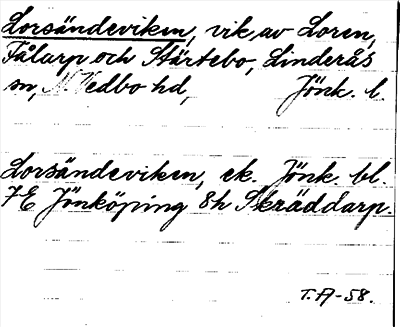 Lorsändeviken, vik av Loren,
Fålarp och Stärtebo, Linderås
sn, N. Vedbo hd, Jönk. l.
Lorsändeviken, ek. Jönk. bl.
7E Jönköping 8h Skräddarp.
T.A-58.